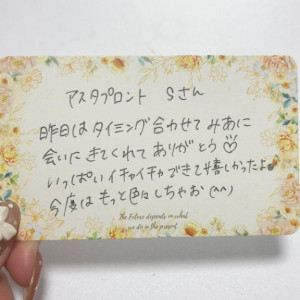 アスタプロント Sさん
昨日はタイミング合わせてみあに
会いにきてくれてありがとう♡
いっぱいイチャイチャできて嬉しかったよ♪
今度はもっと色々しちゃお(^^)
The Future depends on what
we do in the present.